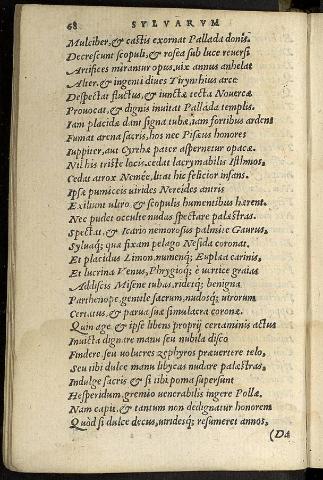 68 SYLVARVM
Mulciber, & castis exornat Pallada donis.
Decrescunt scopuli, & rosea sub luce reuersi
Artifices mirantur opus, uix annus anhelat
Alter, & ingenti diues Tirynthius arce
Despectat fluctus, & iuncta tecta Nouercæ
Prouocat, & dignis inuitat Pallada templis.
Iam placidæ dant signa tubæ, iam fortibus ardens
Fumat arena sacris, hos nec Pisæus honores
Iuppiter, aut Cyrhæ pater aspernetur opacæ.
Nil his triste locis. cedat lacrymabilis Isthmos.
Cedat atrox Nemée, litat hic felicior infans.
Ipsæ pumiceis uirides Nereides antris
Exiliunt ultro, & scopulis humentibus hærent.
Nec pudet occulte nudas spectare palæstras.
Spectat, & Icario nemorosus palmite Gaurus,
Syluaq; quæ fixam pelago Nesida coronat.
Et placidus Limon, numenq; Euplœa carinis,
Et lucrina Venus, Phrygioq; è uertice graias
Addiscis Misene tubas, ridetq; benigna
Parthenope, gentile sacrum, nudosq; uirorum
Certatus, & parua suæ simulacra coronæ.
Quin age & ipse libens proprij certaminis actus
Inuicta dignare manu seu nubila disco
Findere, seu uolucres zephyros præuertere telo,
Seu tibi dulce manu libycas nudare palæstras.
Indulge sacris & si tibi poma supersunt
Hesperidum, gremio uenerabilis ingere Pollæ.
Nam capit, & tantum non dedignatur honorem
Quòd si dulce decus, uiridesq; resumeret annos,
(Da